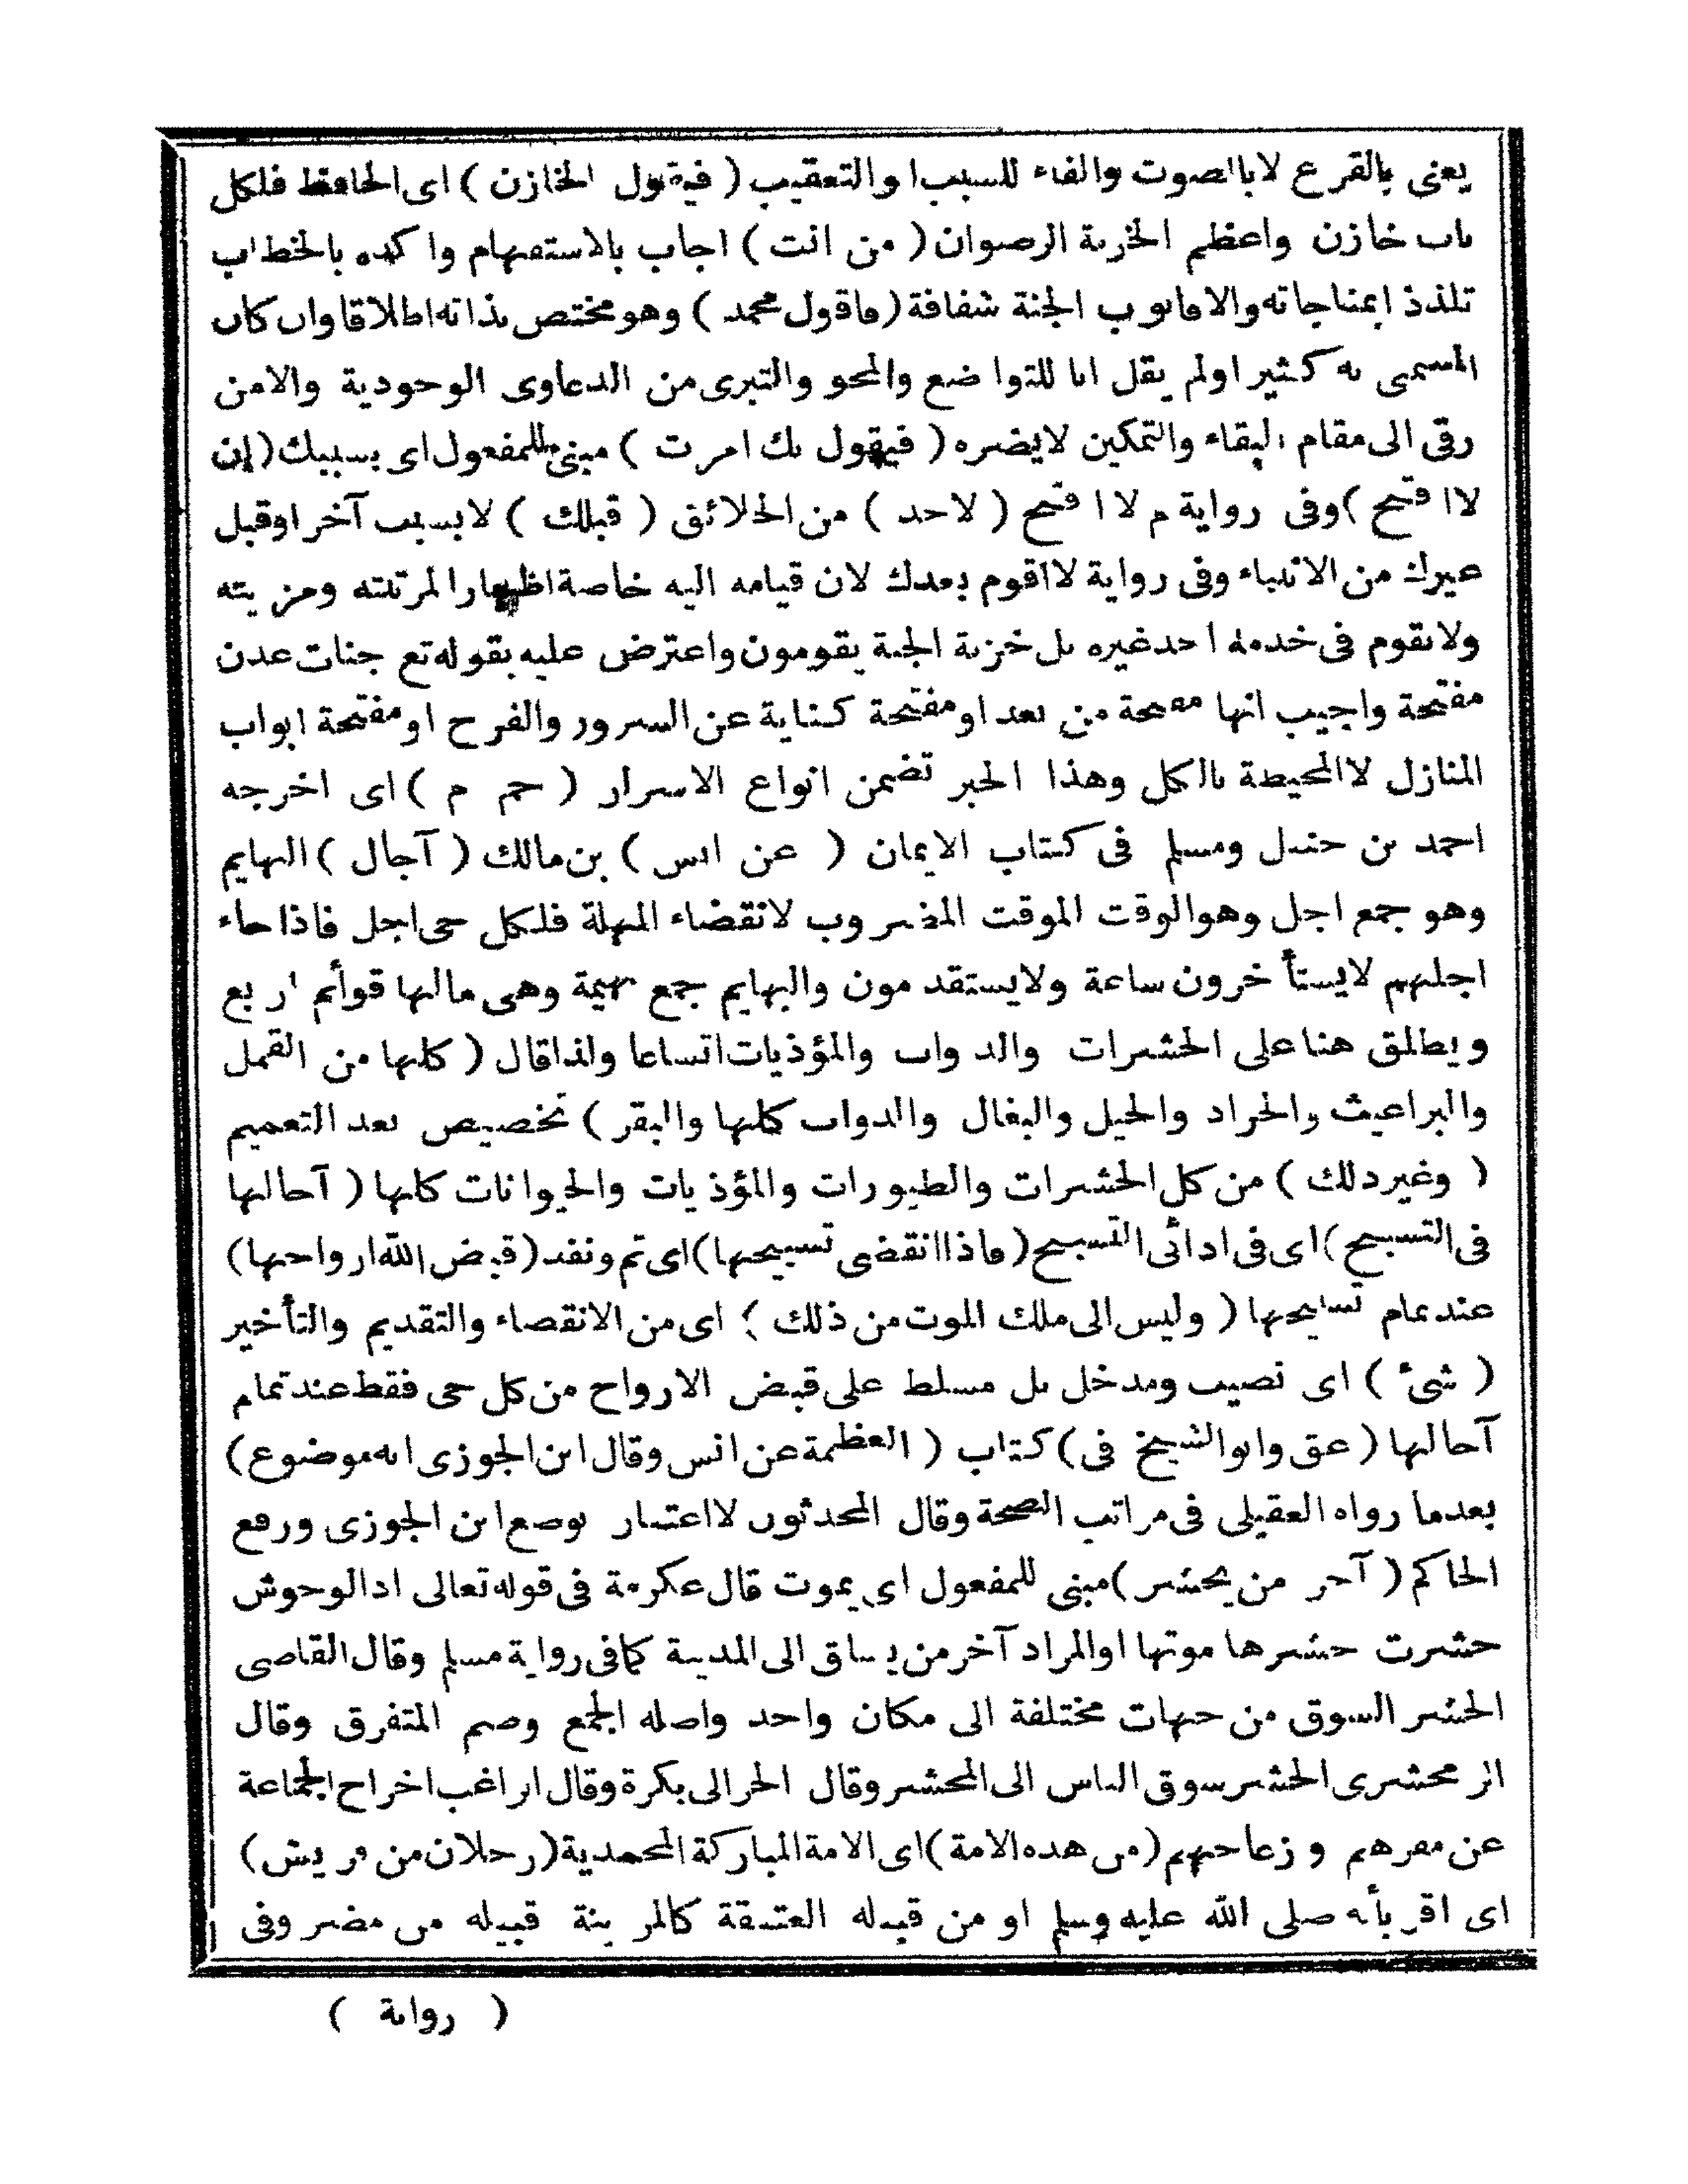 يعنى بالقرع لا بالصوت والفاء للسبب او التعقيب ( فيقول الخازن ) اى الحافظ فلكل
باب خازن واعظم الخزنة الرضوان ( من انت ) اجاب بالاستفهام واكده بالخطاب
تلذذا بمناجاته والا فابوب الجنة شفافة ( فاقول محمد ) وهو مختص بذاته اطلاقا وان كان
المسمى به كثيرا ولم يقل انا للتواضع والمحو والتبرى من الدعاوى الوجودية والا من
رقى الى مقام البقاء والتمكين لايضره ( فيقول بك امرت ) مبنى للمفعول اى بسببك ( ان
لا افتح ) وفى رواية م لا افتح ( لاحد ) من الخلائق ( قبلك ) لا بسبب آخر او قبل
غيرك من الانبياء وفى رواية لا اقوم بعدك لان قيامه اليه خاصة اظهارا لمرتبته ومزيته
ولا يقوم فى خدمة احد غيره بل خزنة الجنة يقومون واعترض عليه بقوله تع جنات عدن
مفتحة واجيب انها مفتحة من بعد او مفتحة كناية عن السرور والفرح او مفتحة ابواب
المنازل لا المحيطة بالكل وهذا الخبر تضمن انواع الاسرار ( حم م ) اى اخرجه
احمد بن حنبل ومسلم فى كتاب الايمان ( عن انس ) بن مالك ( آجال ) البهايم
وهو جمع اجل وهو الوقت الموقت المضروب لانقضاء المهلة فلكل حى اجل فاذا جاء
اجلهم لايستأخرون ساعة ولايستقدمون والبهايم جمع بهيمة وهى مالها قوائم اربع
ويطلق هنا على الحشرات والدواب والمؤذيات اتساعا ولذا قال ( كلها من القمل
والبراغيث والجراد والخيل والبغال والدواب كلها والبقر ) تخصيص بعد التعميم
( وغير ذلك ) من كل الحشرات والطيورات والمؤذيات والحيوانات كلها ( آجالها
فى التسبيح ) اى فى ادائى التسبيح ( فاذا انقضى تسبيحها ) اى تم ونفد ( قبض الله ارواحها )
عند تمام تسابيحها ( وليس الى ملك الموت من ذلك ) اى من الانقضاء والتقديم والتأخير
( شئ ) اى نصيب ومدخل بل مسلط على قبض الارواح من كل حى فقط عند تمام
آجالها ( عق وابوالشيخ فى ) كتاب ( العظمة عن انس وقال ابن الجوزى انه موضوع )
بعدما رواه العقيلى فى مراتب الصحة وقال المحدثون لا اعتبار بوضع ابن الجوزى ورفع
الحاكم ( آخر من يحشر ) مبنى للمفعول اى يموت قال عكرمة فى قوله تعالى اذا الوحوش
حشرت حشرها موتها او المراد آخر من يساق الى المدينة كما فى رواية مسلم وقال القاضى
الحشر السوق من جهات مختلفة الى مكان واحد واصله الجمع وضم المتفرق وقال
الزمحشرى الحشر سوق الناس الى المحشر وقال الحرالى بكرة وقال الراغب اخراج الجماعة
عن مقرهم وزعاجهم ( من هذه الامة ) اى الامة المباركة المحمدية ( رجلان من قريش )
اى اقربائه صلى الله عليه وسلم او من قبيله العتيقة كالمزينة قبيله من مضر وفى
( رواية )